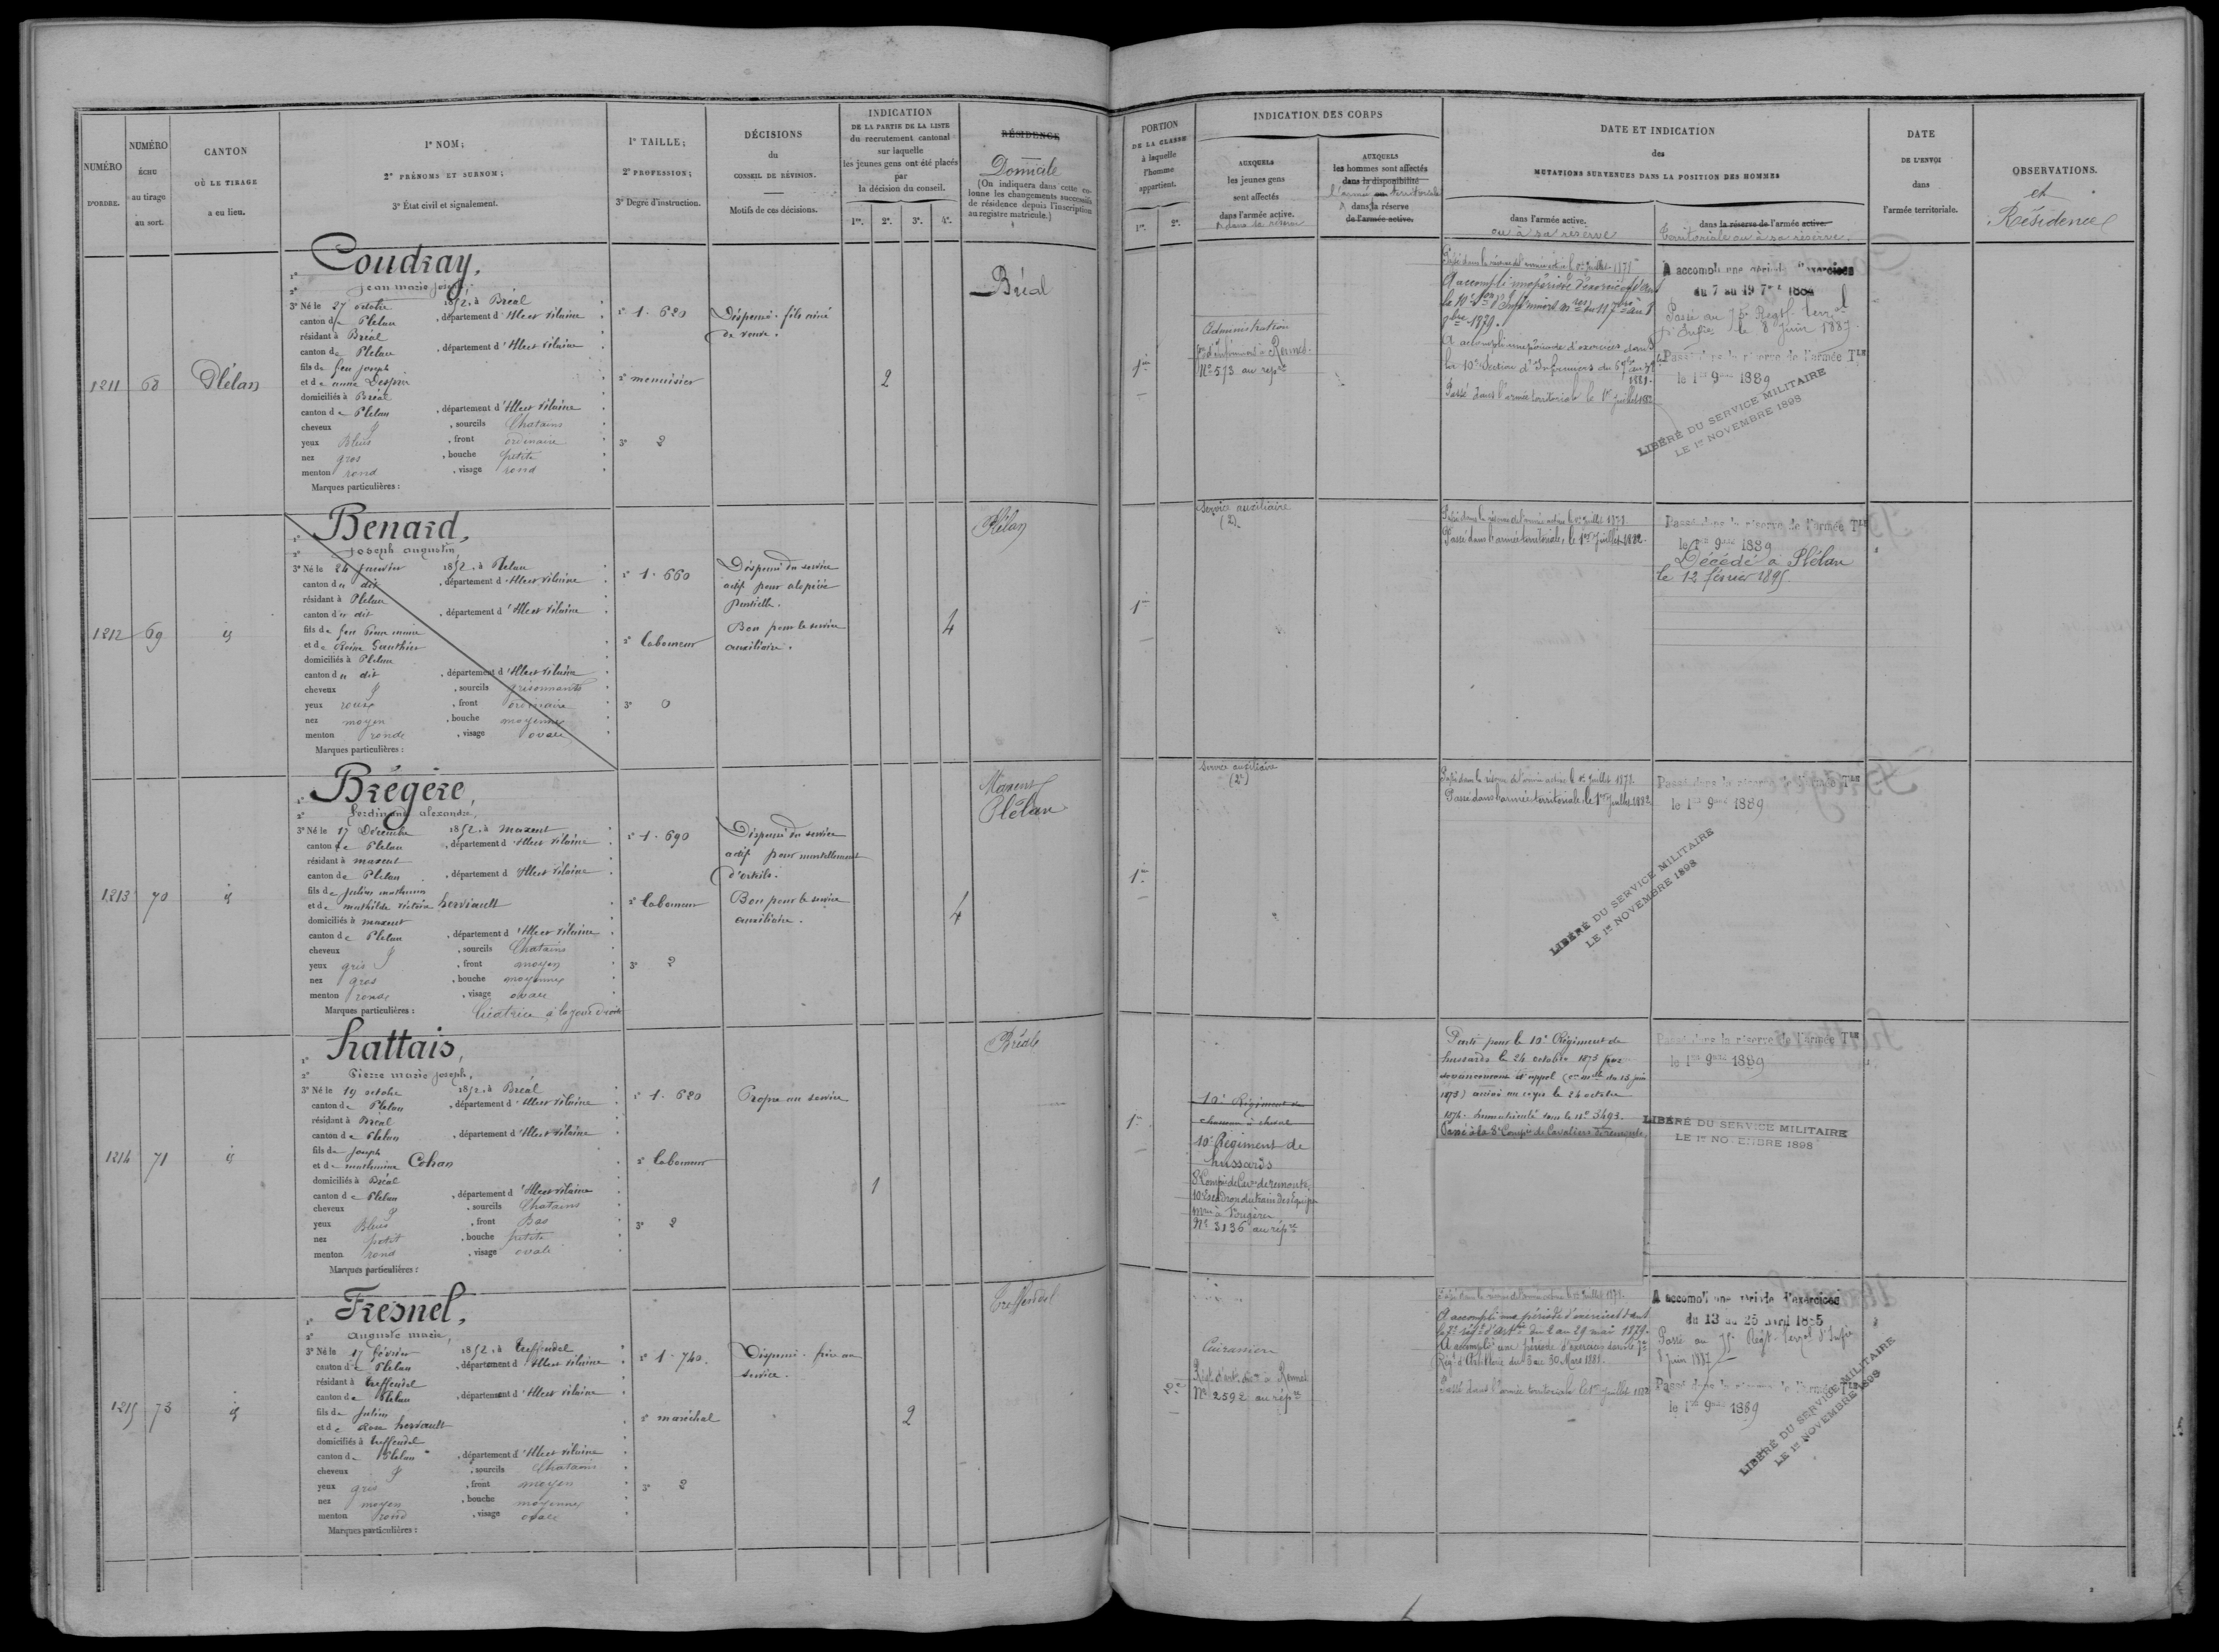 NUMÉRO
D'ORDRE.
NUMÉRO
ÉCHU
au tirage
au sort.
CANTON
OÙ LE TIRAGE
a eu lieu.
1° NOM;
2° PRÉNOMS ET SURNOM;
3° État civil et signalement.
1° TAILLE;
2° PROFESSION;
3° Degré d'instruction.
DÉCISIONS
du
CONSEIL DE RÉVISION.
Motifs de ces décisions.
INDICATION
DE LA PARTIE DE LA LISTE
du recrutement cantonal
sur laquelle
les jeunes gens ont été placés
par
la décision du conseil.
1re. 2e. 3e. 4e.
RÉSIDENCE
Domicile
(On indiquera dans cette co-
lonne les changements successifs
de résidence depuis l'inscription
au registre matricule.)
PORTION
DE LA CLASSE
à laquelle
l'homme
appartient.
1re. 2e.
INDICATION DES CORPS
AUXQUELS
les jeunes gens
sont affectés
dans l'armée active.
& dans la réserve
AUXQUELS
les hommes sont affectés
dans la disponibilité
l'armée ou territoriale
& dans la réserve
de l'armée active.
DATE ET INDICATION
des
MUTATIONS SURVENUES DANS LA POSITION DES HOMMES
dans l'armée active.
ou à sa réserve
dans la réserve de l'armée active
territoriale ou à sa réserve.
DATE
DE L'ENVOI
dans
l'armée territoriale.
OBSERVATIONS.
et
Résidence
1211 68 Plélan
1° Coudray,
2° Jean marie joseph,
3° Né le 27 octobre 1852, à Bréal
canton de Plelan, département d'Ille et Vilaine
résidant à Bréal
canton de Plelan, département d'Ille et Vilaine
fils de feu joseph
et de anne
domiciliés à Bréal
canton de Plelan, département d'Ille et Vilaine
cheveux, sourcils Chatains
yeux Bleus, front ordinaire
nez gros, bouche petite
menton rond, visage rond
Marques particulières :
1° 1.620
2° menuisier
3° 2
Dispensé. fils ainé
de veuve.
2
Bréal
1re
Administration
Son d'infirmiers à Rennes.
N° 573 au repre
Passé dans la réserve de l'armée active le 1er Juillet 187
A accompli une période d'exercices dans
la 10e Son d'Infirmiers mres du 11 7bre au 8
9bre 1879.
A accompli une période d'exercices dans
la 10e Section d'Infirmiers du
1881.
Passé dans l'armée territoriale le 1er Juillet 1882
A accompli une période d'exercices
du 7 au 19 7bre 188
Passé au 75e Regt Terral
d'Infie le 8 Juin 1887
Passé dans la réserve de l'armée Tle
le 1er 9bre 1889
LIBÉRÉ DU SERVICE MILITAIRE
LE 1er NOVEMBRE 1898
1212 69 id
1° Benard,
2° joseph augustin,
3° Né le 24 janvier 1852, à Plelan
canton du dit, département d'Ille et Vilaine
résidant à Plelan
canton du dit, département d'Ille et Vilaine
fils de feu
et de Gauthier
domiciliés à Plelan
canton du dit, département d'Ille et Vilaine
cheveux, sourcils grisonnants
yeux roux, front ordinaire
nez moyen, bouche moyenne
menton rond, visage ovale
Marques particulières :
1° 1.660
2° laboureur
3° 0
Dispensé du service
actif pour alopécie
partielle.
Bon pour le service
auxiliaire.
4
Plélan
1re
Service auxiliaire
(2)
Passé dans la réserve de l'armée active le 1er Juillet 187
Passé dans l'armée territoriale, le 1er Juillet 1882.
Passé dans la réserve de l'armée Tle
le 1er 9bre 1889
Décédé à Plélan
le 12 février 1895
1213 70 id
1° Brégère,
2° ferdinand alexandre,
3° Né le 17 Décembre 1852, à maxent
canton de Plelan, département d'Ille et Vilaine
résidant à maxent
canton de Plelan, département d'Ille et Vilaine
fils de Julien mathurin
et de mathilde victoire herviault
domiciliés à maxent
canton de Plelan, département d'Ille et Vilaine
cheveux, sourcils Chatains
yeux gris, front moyen
nez gros, bouche moyenne
menton rond, visage ovale
Marques particulières : Cicatrice à la joue droite
1° 1.690
2° laboureur
3° 2
Dispensé du service
actif pour martellement
d'orteils.
Bon pour le service
auxiliaire.
4
Maxent
Plélan
1re
Service auxiliaire
(2e)
Passé dans la réserve de l'armée active le 1er Juillet 187
Passé dans l'armée territoriale, le 1er Juillet 1882
Passé dans la réserve de l'armée Tle
le 1er 9bre 1889
LIBÉRÉ DU SERVICE MILITAIRE
LE 1er NOVEMBRE 1898
1214 71 id
1° hattais,
2° Pierre marie joseph,
3° Né le 19 octobre 1852, à Bréal
canton de Plelan, département d'Ille et Vilaine
résidant à Bréal
canton de Plelan, département d'Ille et Vilaine
fils de joseph
et de mathurine Cohan
domiciliés à Bréal
canton de Plelan, département d'Ille et Vilaine
cheveux, sourcils Chatains
yeux Bleus, front Bas
nez petit, bouche petite
menton rond, visage ovale
Marques particulières :
1° 1.620
2° laboureur
3° 2
Propre au service
1
Bréal
1re
10e Régiment de
chasseurs à cheval
10e Régiment de
hussards
8e Compie de Cavrs de remonte,
10e Escadron du train des équipes
mres à Fougères
N° 3136 au répre
Parti pour le 10e Régiment de
hussards le 24 octobre 1873 par
devancement d'appel (cre mlle du 13 juin
1873) arrivé au corps le 24 octobre
1874. Immatriculé sous le n° 3493.
Passé à la 8e Compie de Cavaliers de remonte,
Passé dans la réserve de l'armée Tle
le 1er 9bre 1889
LIBÉRÉ DU SERVICE MILITAIRE
LE 1er NOVEMBRE 1898
1215 73 id
1° Fresnel,
2° Auguste marie,
3° Né le 17 février 1852, à treffendel
canton de Plelan, département d'Ille et Vilaine
résidant à treffendel
canton de Plelan, département d'Ille et Vilaine
fils de Julien
et de Rose herviault
domiciliés à treffendel
canton de Plelan, département d'Ille et Vilaine
cheveux, sourcils Chatains
yeux gris, front moyen
nez moyen, bouche moyenne
menton rond, visage ovale
Marques particulières :
1° 1.740.
2° maréchal
3° 2
Dispensé. frère au
service.
2
Treffendel
Cuirassiers
Régt d'art. à Rennes
N° 2592 au répre
Passé dans la réserve de l'armée active le 1er Juillet 187
A accompli une période d'exercices dans
le 7e régt d'Artie du 2 au 29 mai 1879.
A accompli une période d'exercices dans le 7e
Régt d'Artillerie du 3 au 30 Mars 1881.
Passé dans l'armée territoriale le 1er Juillet 1882
A accompli une période d'exercices
du 13 au 25 avril 1885
Passé au 75e Régt Terral d'Infie
8 juin 1887
Passé dans la réserve de l'armée Tle
le 1er 9bre 1889
LIBÉRÉ DU SERVICE MILITAIRE
LE 1er NOVEMBRE 1898